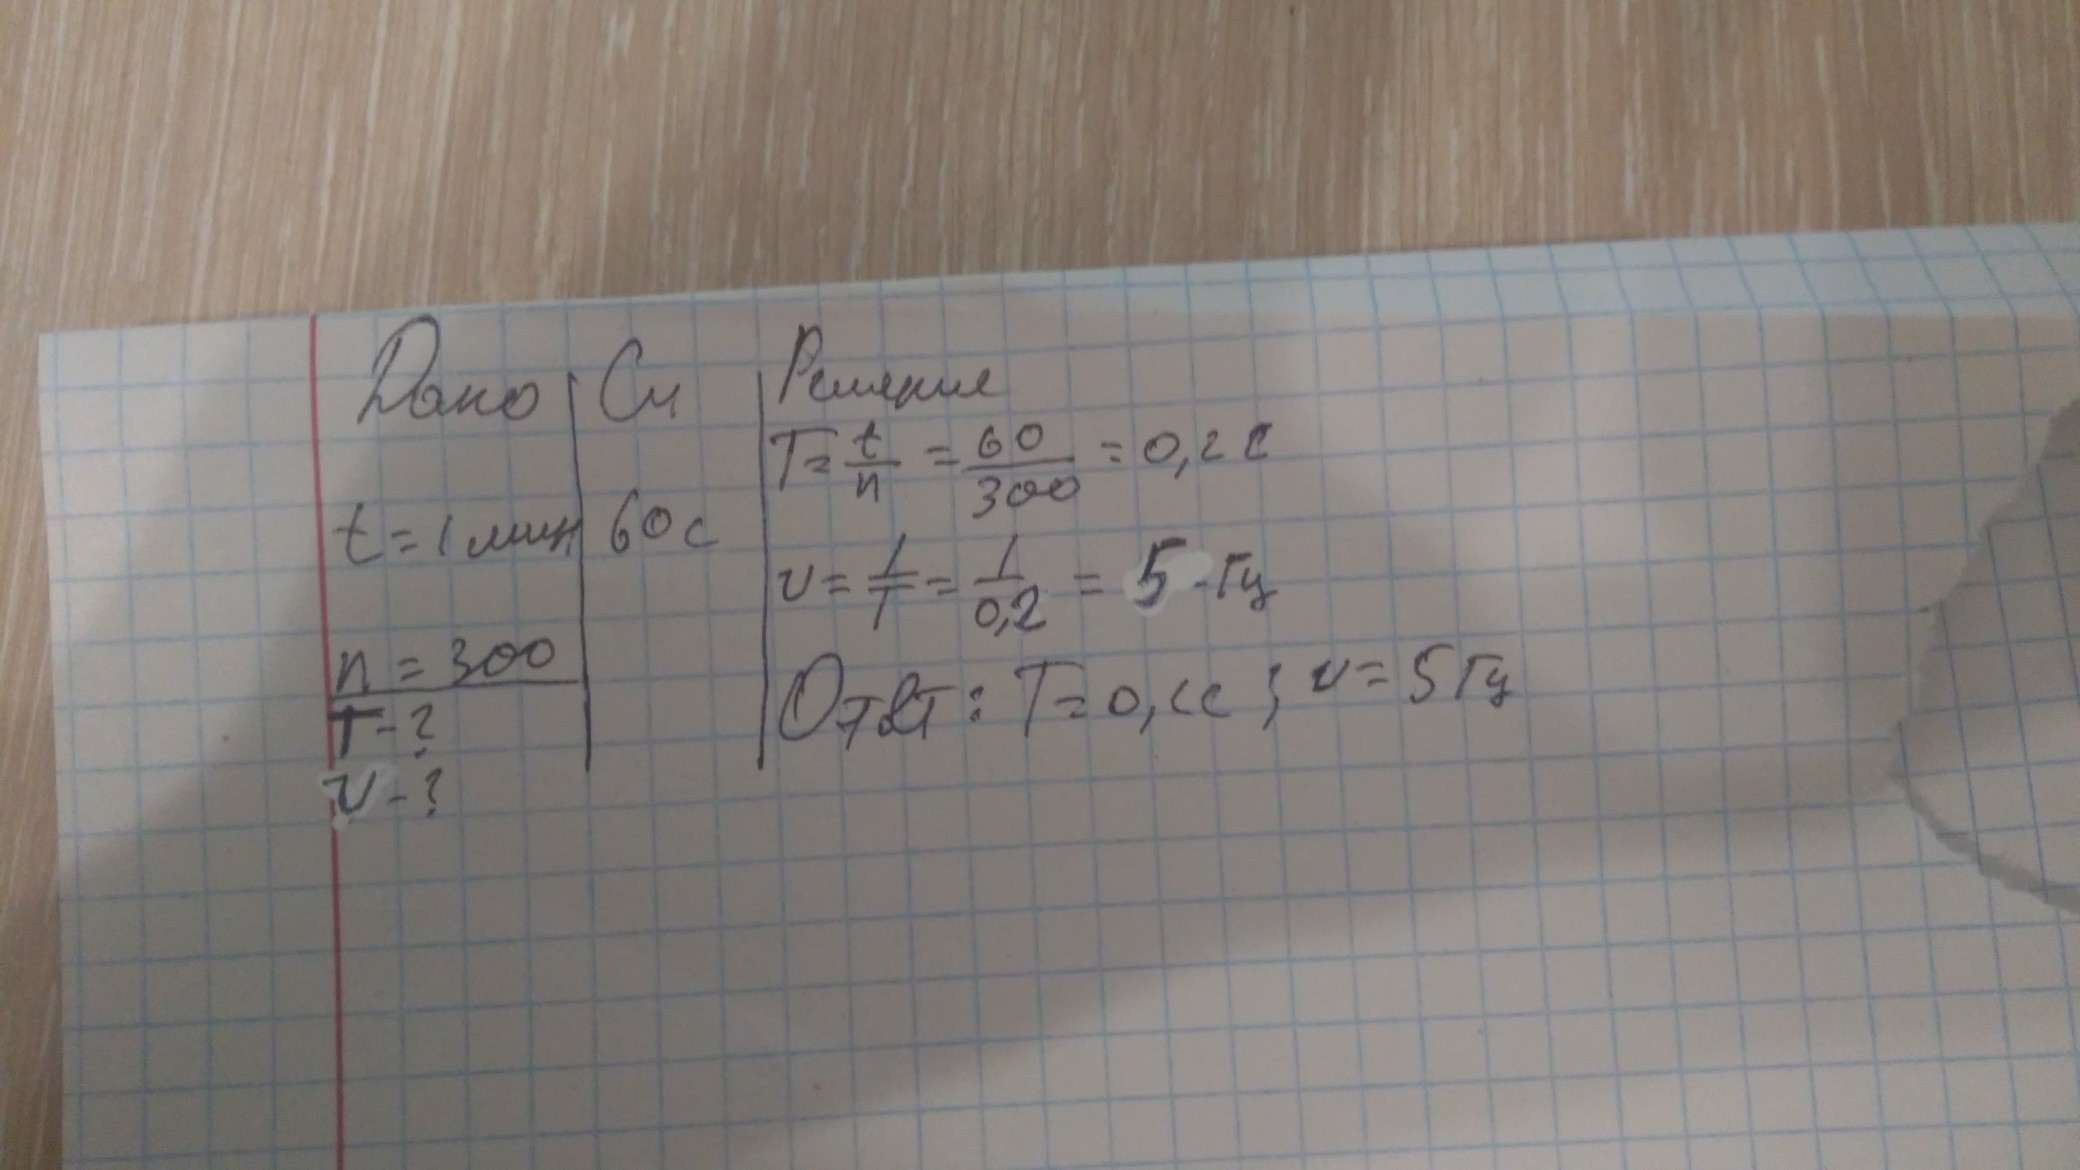 Дано Си Решение
T = t/n = 60/300 = 0,2 с
t = 1 мин 60 с
ν = 1/T = 1/0,2 = 5 Гц
n = 300
T - ?
Ответ: T = 0,2с ; ν = 5 Гц
ν - ?